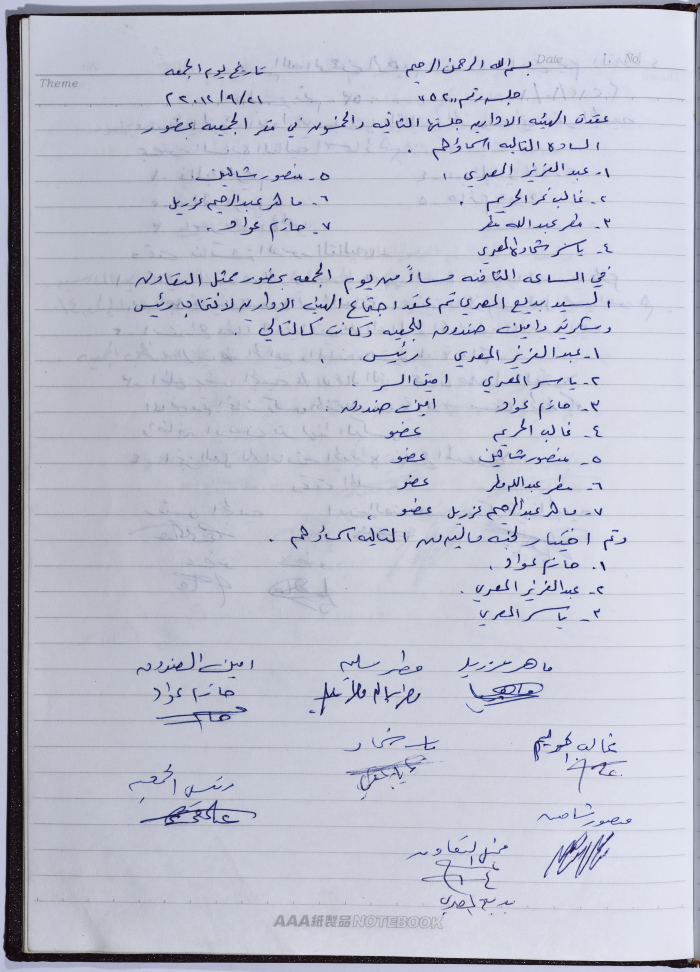 Date No.
Theme
بسم الله الرحمن الرحيم تاريخ يوم الجمعه
جلسه رقم 52 ٢٠١٢/٩/٢١
عقدت الهيئه الاداريه جلستها الثانيه والخمسون في مقر الجمعيه بحضور
الساده التاليه اسماؤهم .
١- عبد العزيز المصري ٥- منصور شاهين
٢- غالب نمر الحريم ٦- ماهر عبد الرحيم عزريل
٣- مطر عبد الله مطر ٧- حازم عواد
٤- ياسر شحاده المصري
في الساعه الثامنه مساءً من يوم الجمعه بحضور ممثل التعاون
السيد بديع المصري تم عقد اجتماع الهيئه الاداريه لانتخاب رئيس
وسكرتير وامين صندوق للجمعيه وكانت كالتالي
١- عبد العزيز المصري رئيس
٢- ياسر المصري امين السر
٣- حازم عواد امين صندوق
٤- غالب الحريم عضو
٥- منصور شاهين عضو
٦- مطر عبد الله مطر عضو
٧- ماهر عبد الرحيم عزريل عضو
وتم اختيار لجنه ماليه من التاليه اسماؤهم .
١. حازم عواد .
٢- عبد العزيز المصري .
٣- ياسر المصري
ماهر عزريل مطر امين الصندوق
حازم عواد
غالب الحريم ياسر شحاد
رئيس الجمعيه
منصور شاهين
ممثل التعاون
بديع المصري
AAA紙製品NOTEBOOK